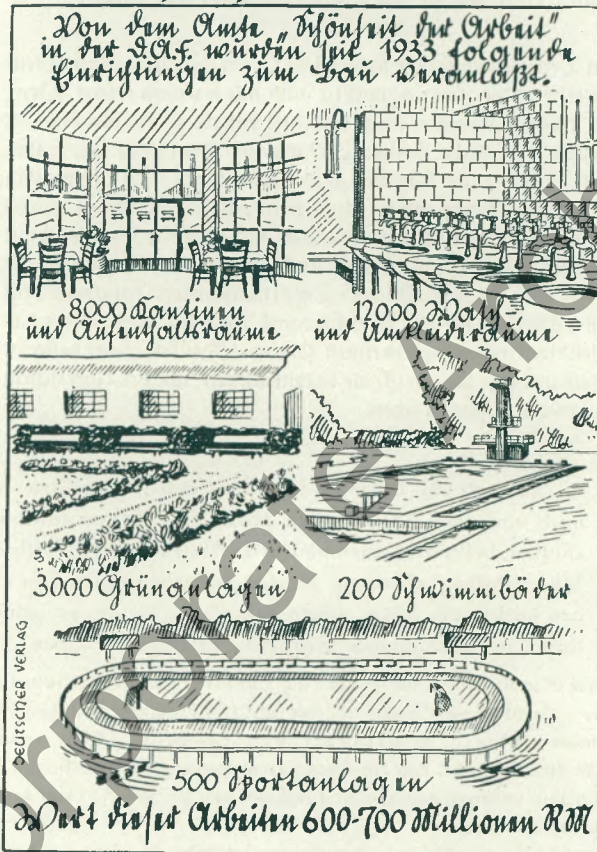 Von dem Amte „Schönheit der Arbeit“
in der D.A.F. wurden seit 1933 folgende
Einrichtungen zum Bau veranlaßt.
8000 Kantinen
und Aufenthaltsräume
12000 Wasch
und Umkleideräume
3000 Grünanlagen
200 Schwimmbäder
DEUTSCHER VERLAG
500 Sportanlagen
Wert dieser Arbeiten 600-700 Millionen RM